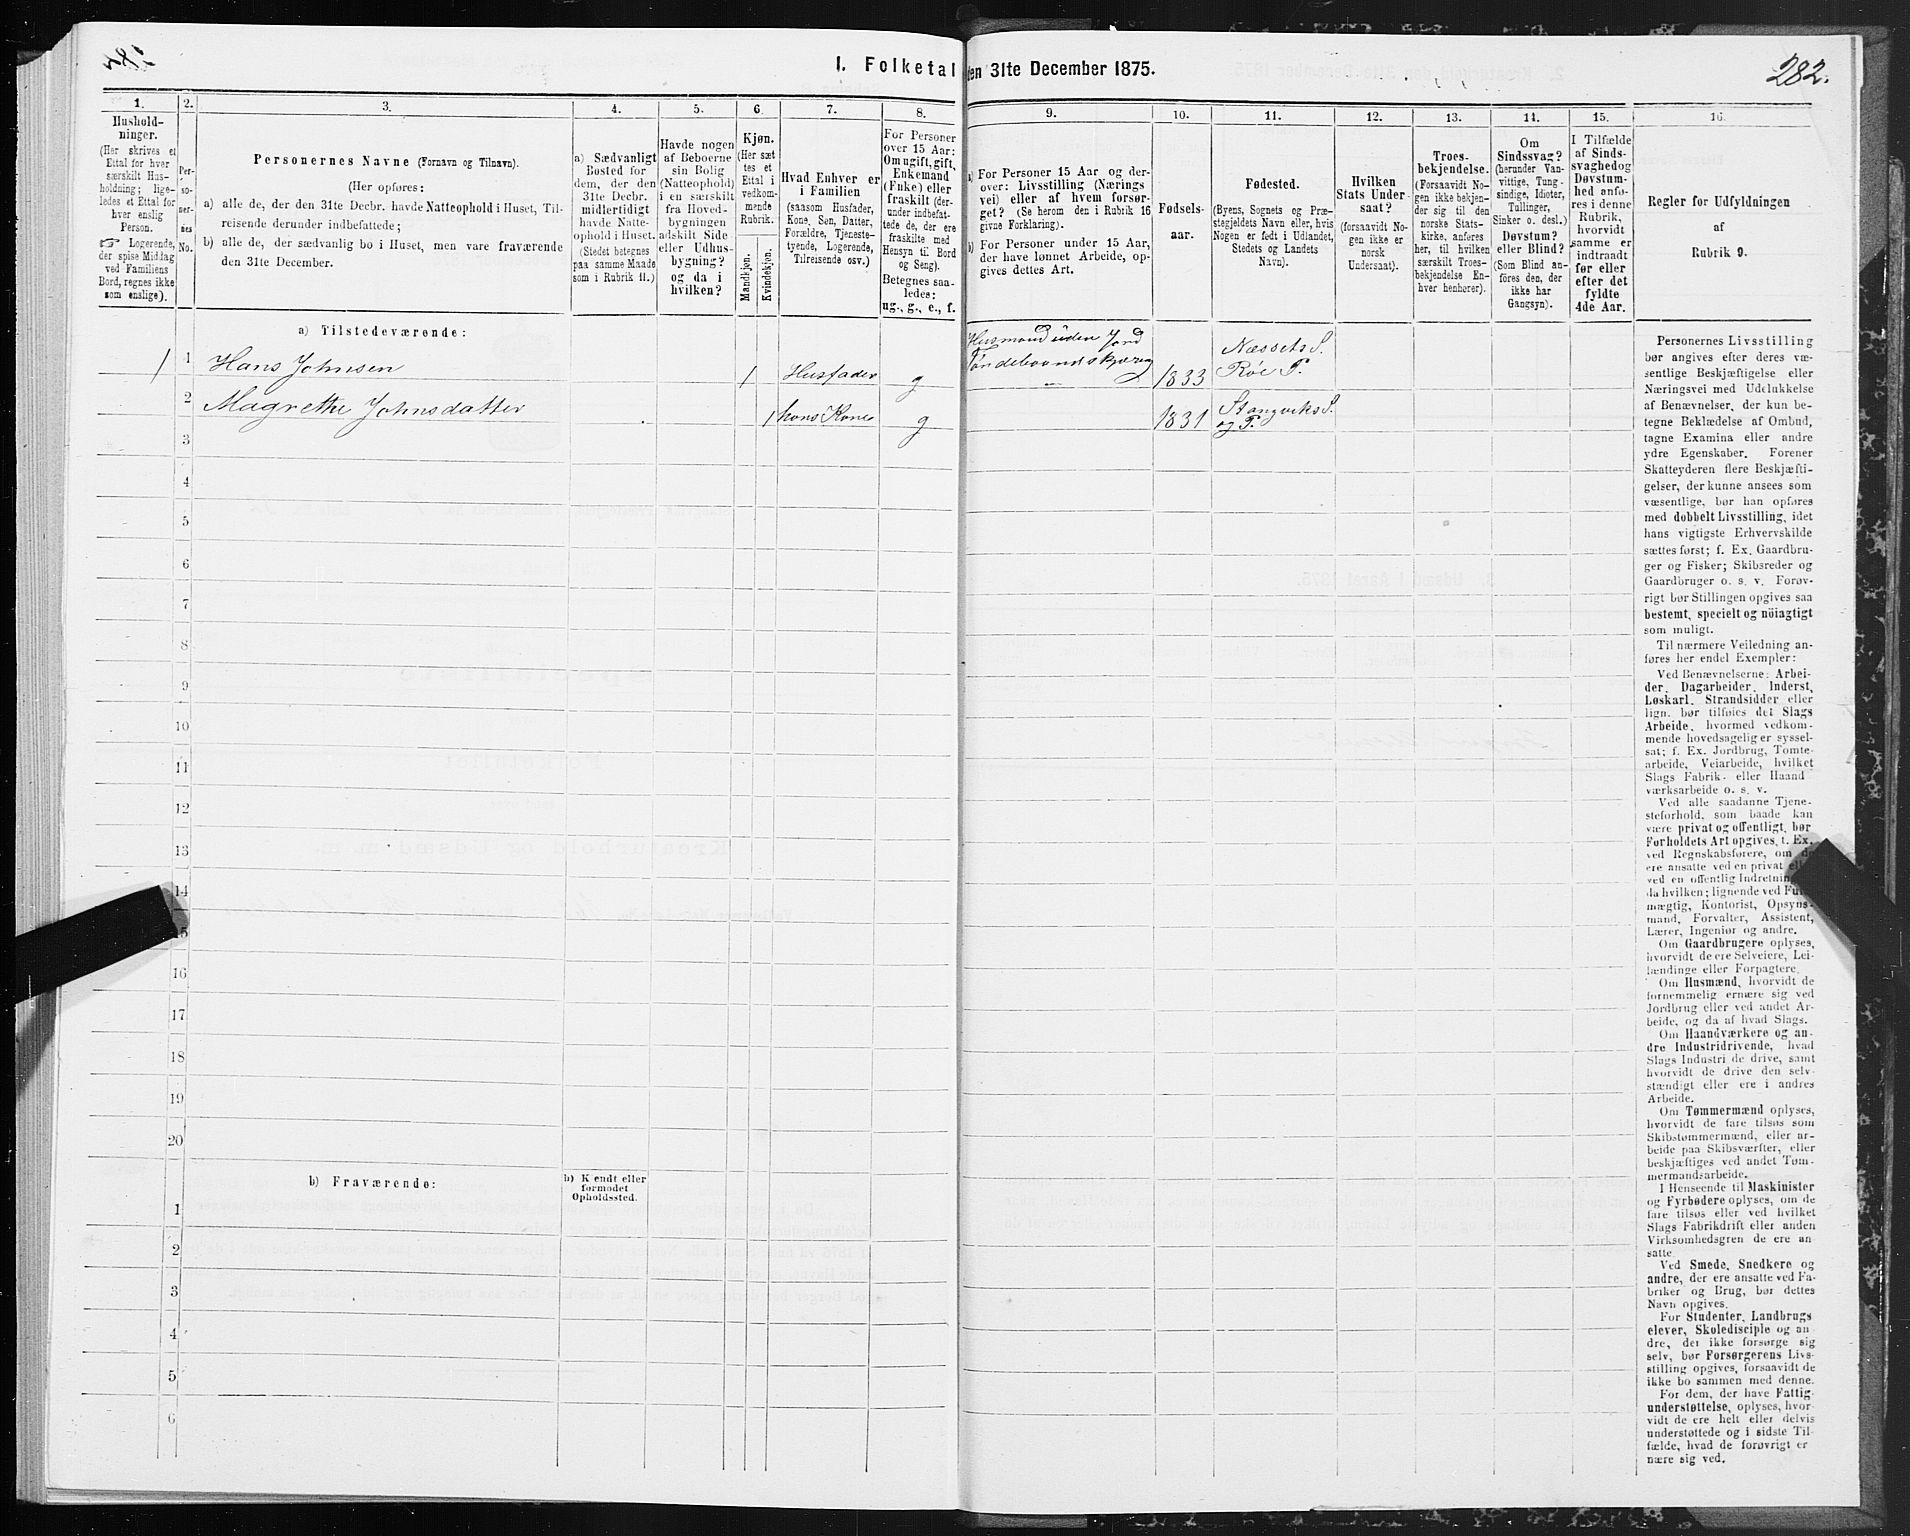 1. Folketal den 31te December 1875.
282.
1.
2.
3.
4.
5.
6.
7.
8.
9.
10.
11.
12.
13.
14.
15.
16.
Hushold-
ninger.
(Her skrives et
Ettal for hver
særskilt Hus-
holdning; lige-
ledes et Ettal for
hver enslig
Person.
☞ Logerende,
der spise Middag
ved Familiens
Bord, regnes ikke
som enslige).
Per-
so-
ner-
nes
No.
Personernes Navne (Fornavn og Tilnavn).
(Her opføres:
a) alle de, der den 31te Decbr. havde Natteophold i Huset, Til-
reisende derunder indbefattede;
b) alle de, der sædvanlig bo i Huset, men vare fraværende
den 31te December.
a) Sædvanligt
Bosted for
dem, der den
31te Decbr.
midlertidigt
havde Natte-
ophold i Huset.
(Stedet betegnes
paa samme Maade
som i Rubrik 11.)
Havde nogen
af Beboerne
sin Bolig
(Natteophold)
i en særskilt
fra Hoved-
bygningen
adskilt Side
eller Udhus-
bygning?
og da i
hvilken?
Kjøn.
(Her sæt
tes et
Ettal i
vedkom-
mende
Rubrik.
Mandkjøn.
Kvindekjøn.
Hvad Enhver er
i Familien
(saasom Husfader,
Kone, Søn, Datter,
Forældre, Tjeneste-
tyende, Logerende,
Tilreisende osv.)
For Personer
over 15 Aar:
Om ugift, gift,
Enkemand
(Enke) eller
fraskilt (der-
under indbefat-
tede de, der ere
fraskilte med
Hensyn til Bord
og Seng).
Betegnes saa-
ledes:
ug., g., e., f.
a) For Personer 15 Aar og der-
over: Livsstilling (Nærings
vei) eller af hvem forsør-
get? (Se herom den i Rubrik 16
givne Forklaring).
b) For Personer under 15 Aar,
der have lønnet Arbeide, op-
gives dettes Art.
Fødsels-
aar.
Fødested.
(Byens, Sognets og Præ-
stegjeldets Navn eller, hvis
Nogen er født i Udlandet,
Stedets og Landets
Navn).
Hvilken
Stats Under-
saat?
(forsaavidt No-
gen ikke er
norsk
Undersaat).
Troes-
bekjendelse.
(Forsaavidt No-
gen ikke bekjen-
der sig til den
norske Stats-
kirke, anføres
her, til hvilken
særskilt Troes-
bekjendelse En-
hver henhører).
Om
Sindssvag?
(herunder Van-
vittige, Tung-
sindige, Idioter,
Tullinger,
Sinker o. desl.)
Døvstum?
eller Blind?
(Som Blind an-
føres den, der
ikke har
Gangsyn).
I Tilfælde
af Sinds-
svaghed og
Døvstum-
hed anfø-
res i denne
Rubrik,
hvorvidt
samme er
indtraadt
før eller
efter det
fyldte
4de Aar.
Regler for Udfyldningen
af
Rubrik 9.
a) Tilstedeværende:
1 1 Hans Johnsen 1 Husfader g Husmand uden Jord
1833 Næssets S.
Røe P.
2 Magrethe Johnsdatter 1 hans Kone g 1831 Stangviks S.
og P.
3
4
5
6
7
8
9
10
11
12
13
14
15
16
17
18
19
20
b) Fraværende:
b) Kendt eller
formodet
Opholdssted.
1
2
3
4
5
6
Personernes Livsstilling
bør angives efter deres væ-
sentlige Beskjæftigelse eller
Næringsvei med Udelukkelse
af Benævnelser, der kun be-
tegne Beklædelse af Ombud,
tagne Examina eller andre
ydre Egenskaber. Forener
Skatteyderen flere Beskjæfti-
gelser, der kunne ansees som
væsentlige, bør han opføres
med dobbelt Livsstilling, idet
hans vigtigste Erhvervskilde
sættes først; f. Ex. Gaardbru-
ger og Fisker; Skibsreder og
Gaardbruger o. s. v. Forøv-
rigt bør Stillingen opgives saa
bestemt, specielt og nöiagtigt
som muligt.
Til nærmere Veiledning an-
føres her endel Exempler:
Ved Benævnelserne: Arbei-
der, Dagarbeider, Inderst,
Løskarl, Strandsidder eller
lign. bør tilføies det Slags
Arbeide, hvormed vedkom-
mende hovedsagelig er syssel-
sat; f. Ex. Jordbrug, Tomte-
arbeide, Veiarbeide, hvilket
Slags Fabrik- eller Haand
værksarbeide o. s. v.
Ved alle saadanne Tjene-
steforhold, som baade kan
være privat og offentligt, bør
Forholdets Art opgives, t. Ex.
ved Regnskabsførere, om de
ere ansatte ved en privat eller
ved en offentlig Indretning
da hvilken; lignende ved Fuld-
mægtig, Kontorist, Opsyns-
mand, Forvalter, Assistent,
Lærer, Ingeniør og andre.
Om Gaardbrugere oplyses,
hvorvidt de ere Selveiere, Lei-
lændinge eller Forpagtere.
Om Husmænd, hvorvidt de
fornemmelig ernære sig ved
Jordbrug eller ved andet Ar-
beide, og da af hvad Slags.
Om Haandværkere og an-
dre Industridrivende, hvad
Slags Industri de drive, samt
hvorvidt de drive den selv-
stændigt eller ere i andres
Arbeide.
Om Tømmermænd oplyses,
hvorvidt de fare tilsøs som
Skibstømmermænd, eller ar-
beide paa Skibsværfter, eller
beskjæftiges ved andet Tøm-
mermandsarbeide.
I Henseende til Maskinister
og Fyrbødere oplyses, om de
fare tilsøs eller ved hvilket
Slags Fabrikdrift eller anden
Virksomhedsgren de ere an-
satte.
Ved Smede, Snedkere og
andre, der ere ansatte ved Fa-
briker og Brug, bør dettes
Navn opgives.
For Studenter, Landbrugs
elever, Skoledisciple og an-
dre, der ikke forsørge sig
selv, bør Forsørgerens Livs-
stilling opgives, forsaavidt de
ikke bo sammen med denne.
For dem, der have Fattig-
understøttelse, oplyses, hvor-
vidt de ere helt eller delvis
understøttede og i sidste Til-
fælde, hvad de forøvrigt er
nære sig ved.